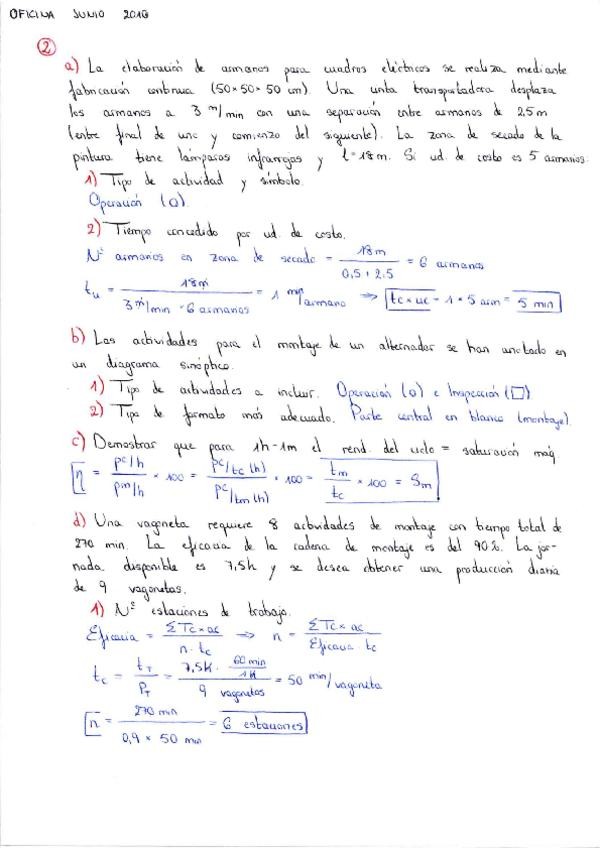 OFICINA JUNIO 2016
2
a) La elaboración de armarios para cuadros eléctricos se realiza mediante
fabricación continua (50×50×50 cm). Una cinta transportadora desplaza
los armarios a 3 m/min con una separación entre armarios de 2,5 m
(entre final de uno y comienzo del siguiente). La zona de secado de la
pintura tiene lámparas infrarrojas y l=18m. Si ud. de costo es 5 armarios.
1) Tipo de actividad y símbolo.
Operación (O).
2) Tiempo concedido por ud. de costo.
Nº armarios en zona de secado = 18m / 0,5 + 2.5 = 6 armarios
tu = 18m / 3 m/min · 6 armarios = 1 min/armario ⇒ tc × uc = 1 × 5 arm = 5 min
b) Las actividades para el montaje de un alternador se han anotado en
un diagrama sinóptico.
1) Tipo de actividades a incluir. Operación (O) e Inspección (□)
2) Tipo de formato más adecuado. Parte central en blanco (montaje).
c) Demostrar que para 1h-1m el rend. del ciclo = saturación máq
η = pc/h / pm/h × 100 = pc/tc (h) / pc/tm (h) × 100 = tm / tc × 100 = Sm
d) Una vagoneta requiere 8 actividades de montaje con tiempo total de
270 min. La eficacia de la cadena de montaje es del 90%. La jor-
nada disponible es 7,5h y se desea obtener una producción diaria
de 9 vagonetas.
1) Nº estaciones de trabajo.
Eficacia = ΣTc × ac / n · tc ⇒ n = ΣTc × ac / Eficacia · tc
tc = tT / PT = 7,5h · 60 min / 1h / 9 vagonetas = 50 min/vagoneta
n = 270 min / 0,9 × 50 min = 6 estaciones